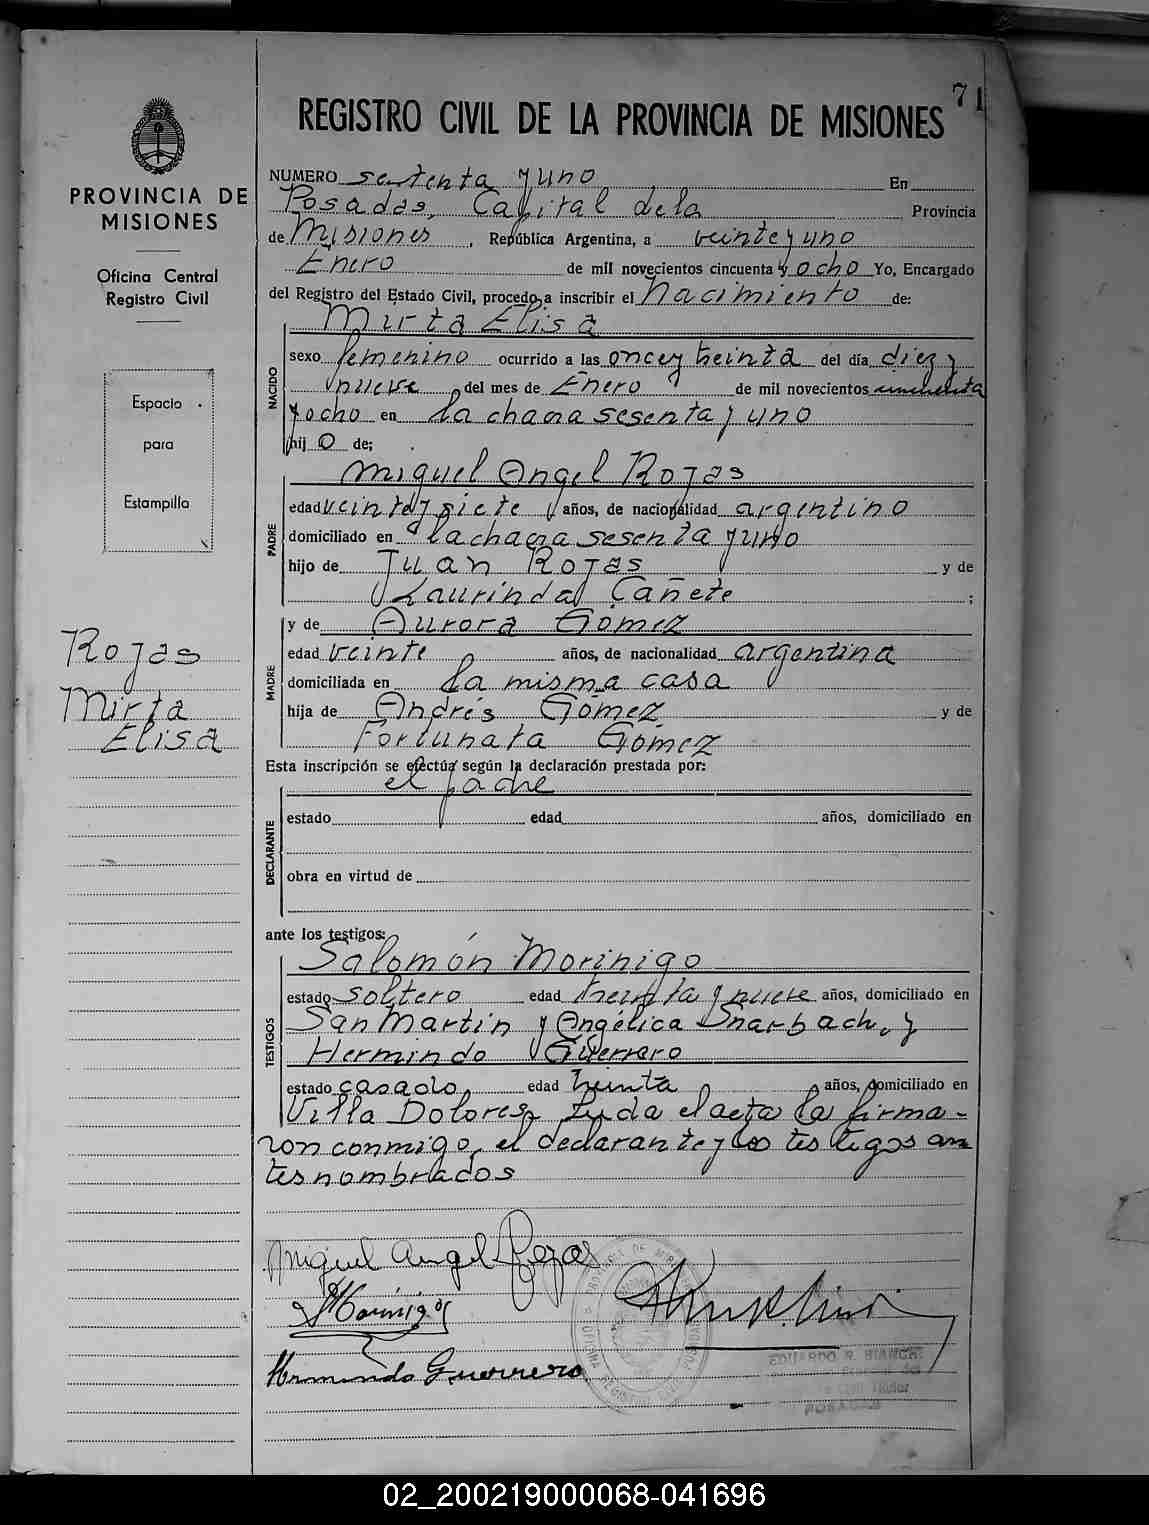 71
REGISTRO CIVIL DE LA PROVINCIA DE MISIONES
PROVINCIA DE
MISIONES
Oficina Central
Registro Civil
Espacio
para
Estampilla
Rojas
Mirta
Elisa
NUMERO setenta y uno En
Posadas, Capital de la Provincia
de Misiones, República Argentina, a veinte y uno
Enero de mil novecientos cincuenta y ocho Yo, Encargado
del Registro del Estado Civil, procedo a inscribir el nacimiento de:
Mirta Elisa
NACIDO
sexo femenino ocurrido a las once y treinta del día diez y
nueve del mes de Enero de mil novecientos cincuenta
y ocho en la chacra sesenta y uno
hij o de;
Miguel Angel Rojas
PADRE
edad veinte y siete años, de nacionalidad argentino
domiciliado en la chacra sesenta y uno
hijo de Juan Rojas y de
Laurinda Cañete ;
y de Aurora Gómez
MADRE
edad veinte años, de nacionalidad argentina
domiciliada en la misma casa
hija de Andrés Gómez y de
Fortunata Gómez
Esta inscripción se efectúa según la declaración prestada por:
el padre
DECLARANTE
estado edad años, domiciliado en
obra en virtud de
ante los testigos:
Salomón Morinigo
TESTIGOS
estado soltero edad treinta y nueve años, domiciliado en
San Martin y Angélica y
Hermindo Guerrero
estado casado edad treinta años, domiciliado en
Villa Dolores, Leida el acta la firma-
ron conmigo, el declarante y los testigos an
tes nombrados
Miguel Angel Rojas
Morinigo
Hermindo Guerrero
EDUARDO R. BIANCHI
POSADAS
02_200219000068-041696